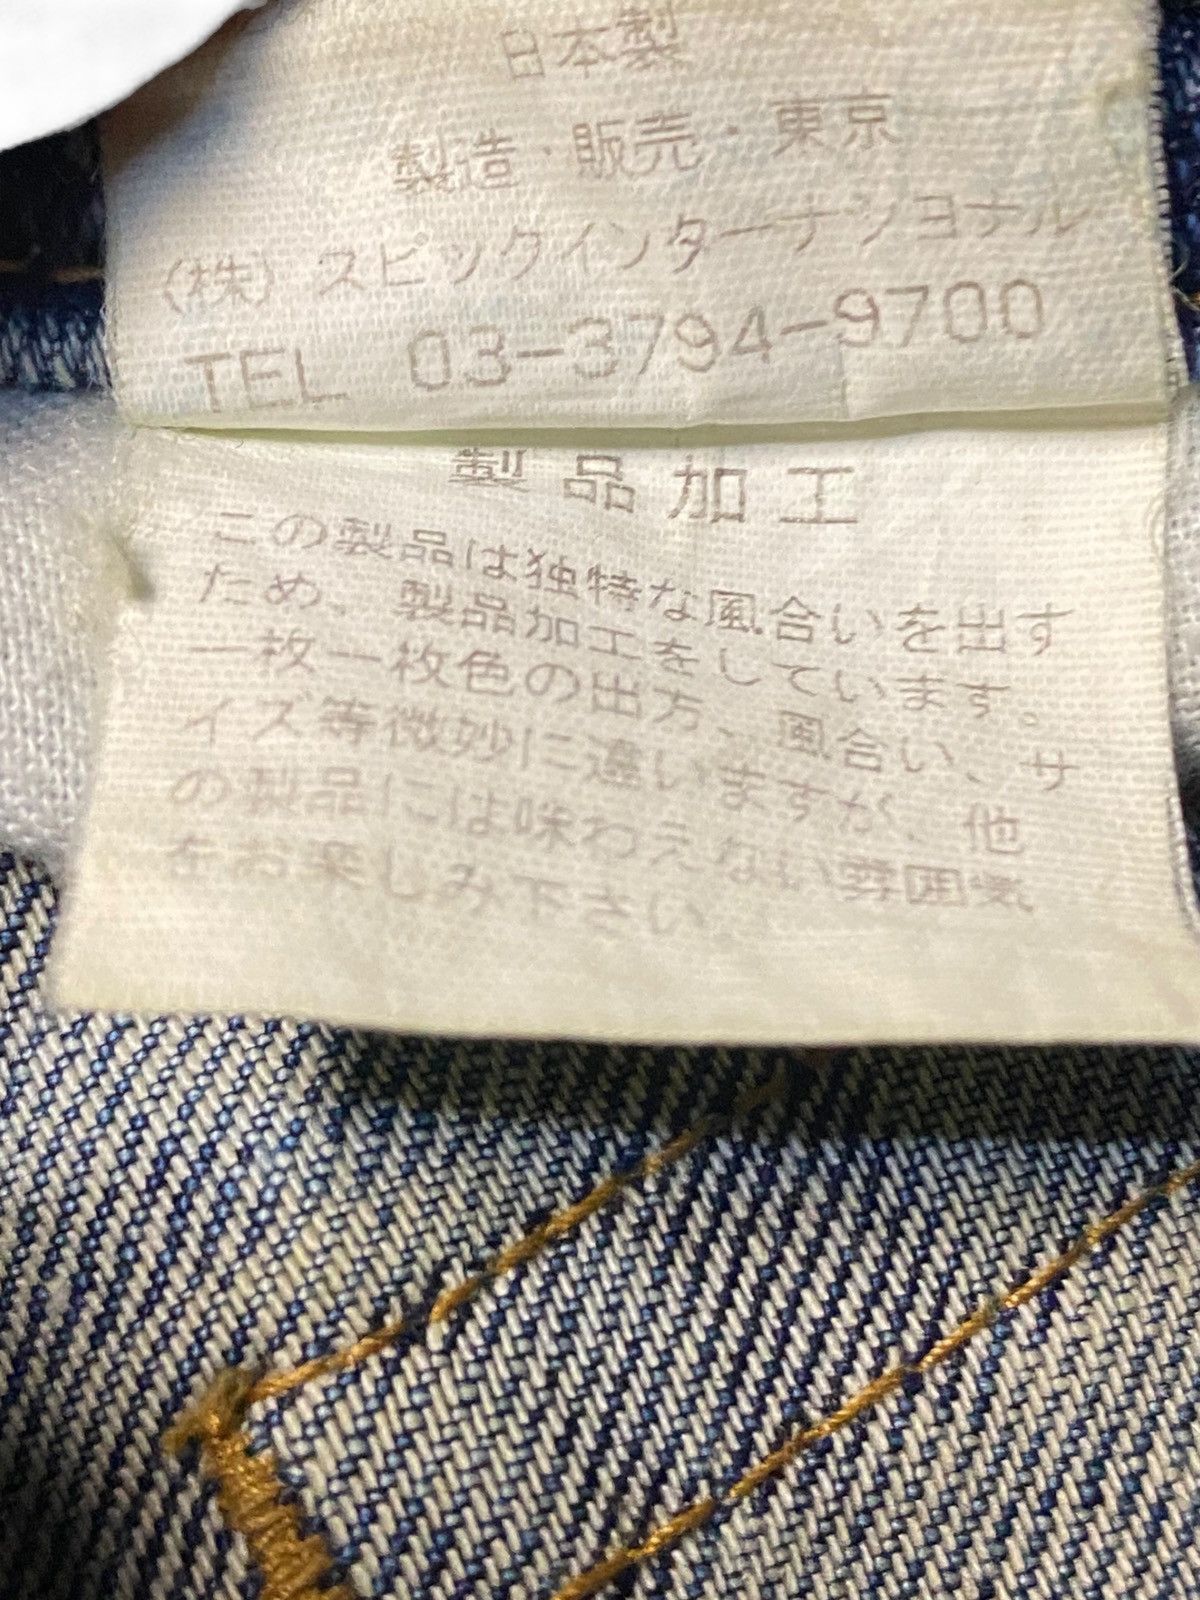 日本製
製造・販売・東京
(株)スピックインターナショナル
TEL 03-3794-9700
製品加工
この製品は独特な風合いを出す
ため、製品加工をしています。
一枚一枚色の出方、風合い、サ
イズ等微妙に違いますが、他
の製品には味わえない雰囲気
をお楽しみ下さい。